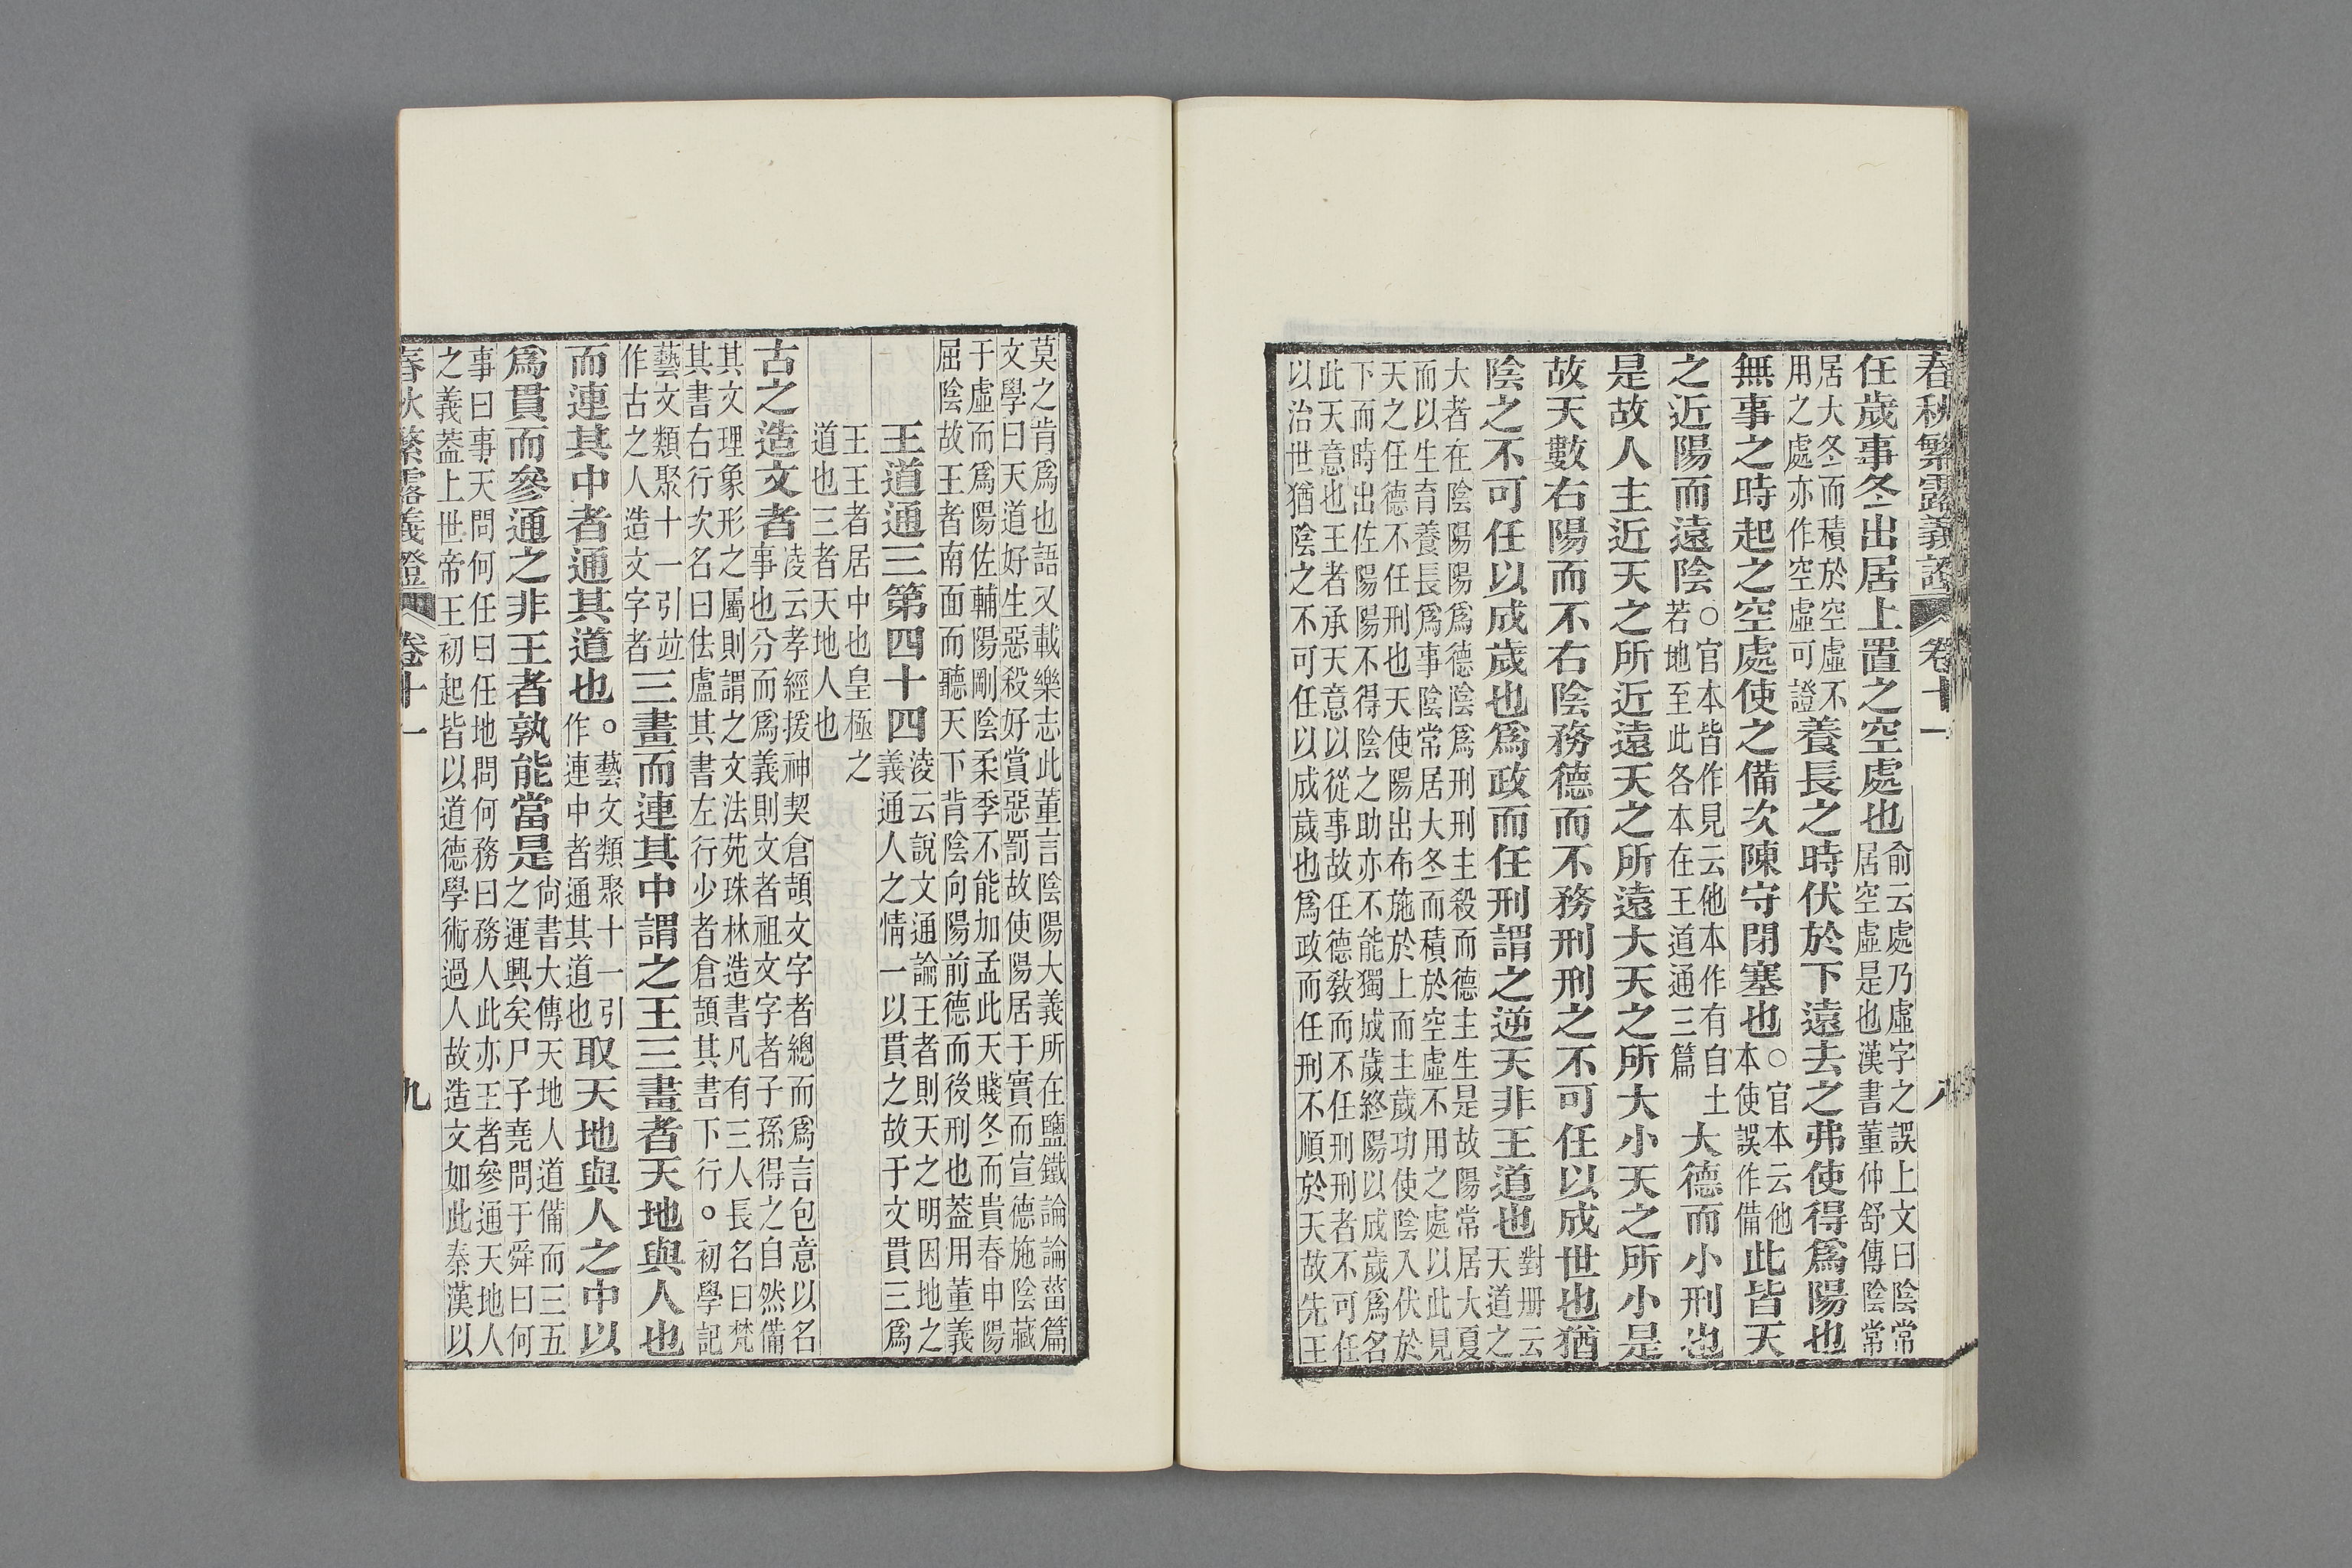 春秋繁露義證 卷十一 八
任歲事冬出居上置之空處也俞云處乃虛字之誤上文曰陰常居空虛是也漢書董仲舒傳陰常
居大冬而積於空虛不用之處亦作空虛可證養長之時伏於下遠去之弗使得爲陽也
無事之時起之空處使之備次陳守閉塞也○官本云他本使誤作備此皆天
之近陽而遠陰○官本皆作見云他本作有自土若地至此各本在王道通三篇大德而小刑也
是故人主近天之所近遠天之所遠大天之所大小天之所小是
故天數右陽而不右陰務德而不務刑刑之不可任以成世也猶
陰之不可任以成歲也爲政而任刑謂之逆天非王道也對册云天道之
大者在陰陽陽爲德陰爲刑刑主殺而德主生是故陽常居大夏
而以生育養長爲事陰常居大冬而積於空虛不用之處以此見
天之任德不任刑也天使陽出布施於上而主歲功使陰入伏於
下而時出佐陽陽不得陰之助亦不能獨成歲終陽以成歲爲名
此天意也王者承天意以從事故任德敎而不任刑刑者不可任
以治世猶陰之不可任以成歲也爲政而任刑不順於天故先王
莫之肯爲也語又載樂志此董言陰陽大義所在鹽鐵論論菑篇
文學曰天道好生惡殺好賞惡罰故使陽居于實而宣德施陰藏
于虛而爲陽佐輔陽剛陰柔季不能加孟此天賤冬而貴春申陽
屈陰故王者南面而聽天下背陰向陽前德而後刑也葢用董義
王道通三第四十四淩云說文通論王者則天之明因地之義通人之情一以貫之故于文貫三爲
王王者居中也皇極之道也三者天地人也
古之造文者淩云孝經援神契倉頡文字者總而爲言包意以名事也分而爲義則文者祖文字者子孫得之自然備
其文理象形之屬則謂之文法苑珠林造書凡有三人長名曰梵
其書右行次名曰佉盧其書左行少者倉頡其書下行。初學記
藝文類聚十一引竝作古之人造文字者三畫而連其中謂之王三畫者天地與人也
而連其中者通其道也。藝文類聚十一引作連中者通其道也取天地與人之中以
爲貫而參通之非王者孰能當是尙書大傳天地人道備而三五之運興矣尸子堯問于舜曰何
事曰事天問何任曰任地問何務曰務人此亦王者參通天地人
之義葢上世帝王初起皆以道德學術過人故造文如此秦漢以
春秋繁露義證 卷十一 九